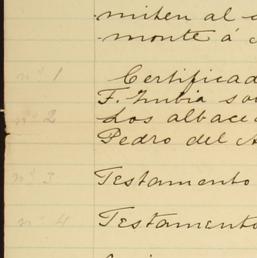 miten al
monte á
nº 1 Certificad
F. Zubia so
nº 2 Los albace
Pedro del A
nº 3 Testamento
nº 4 Testamento